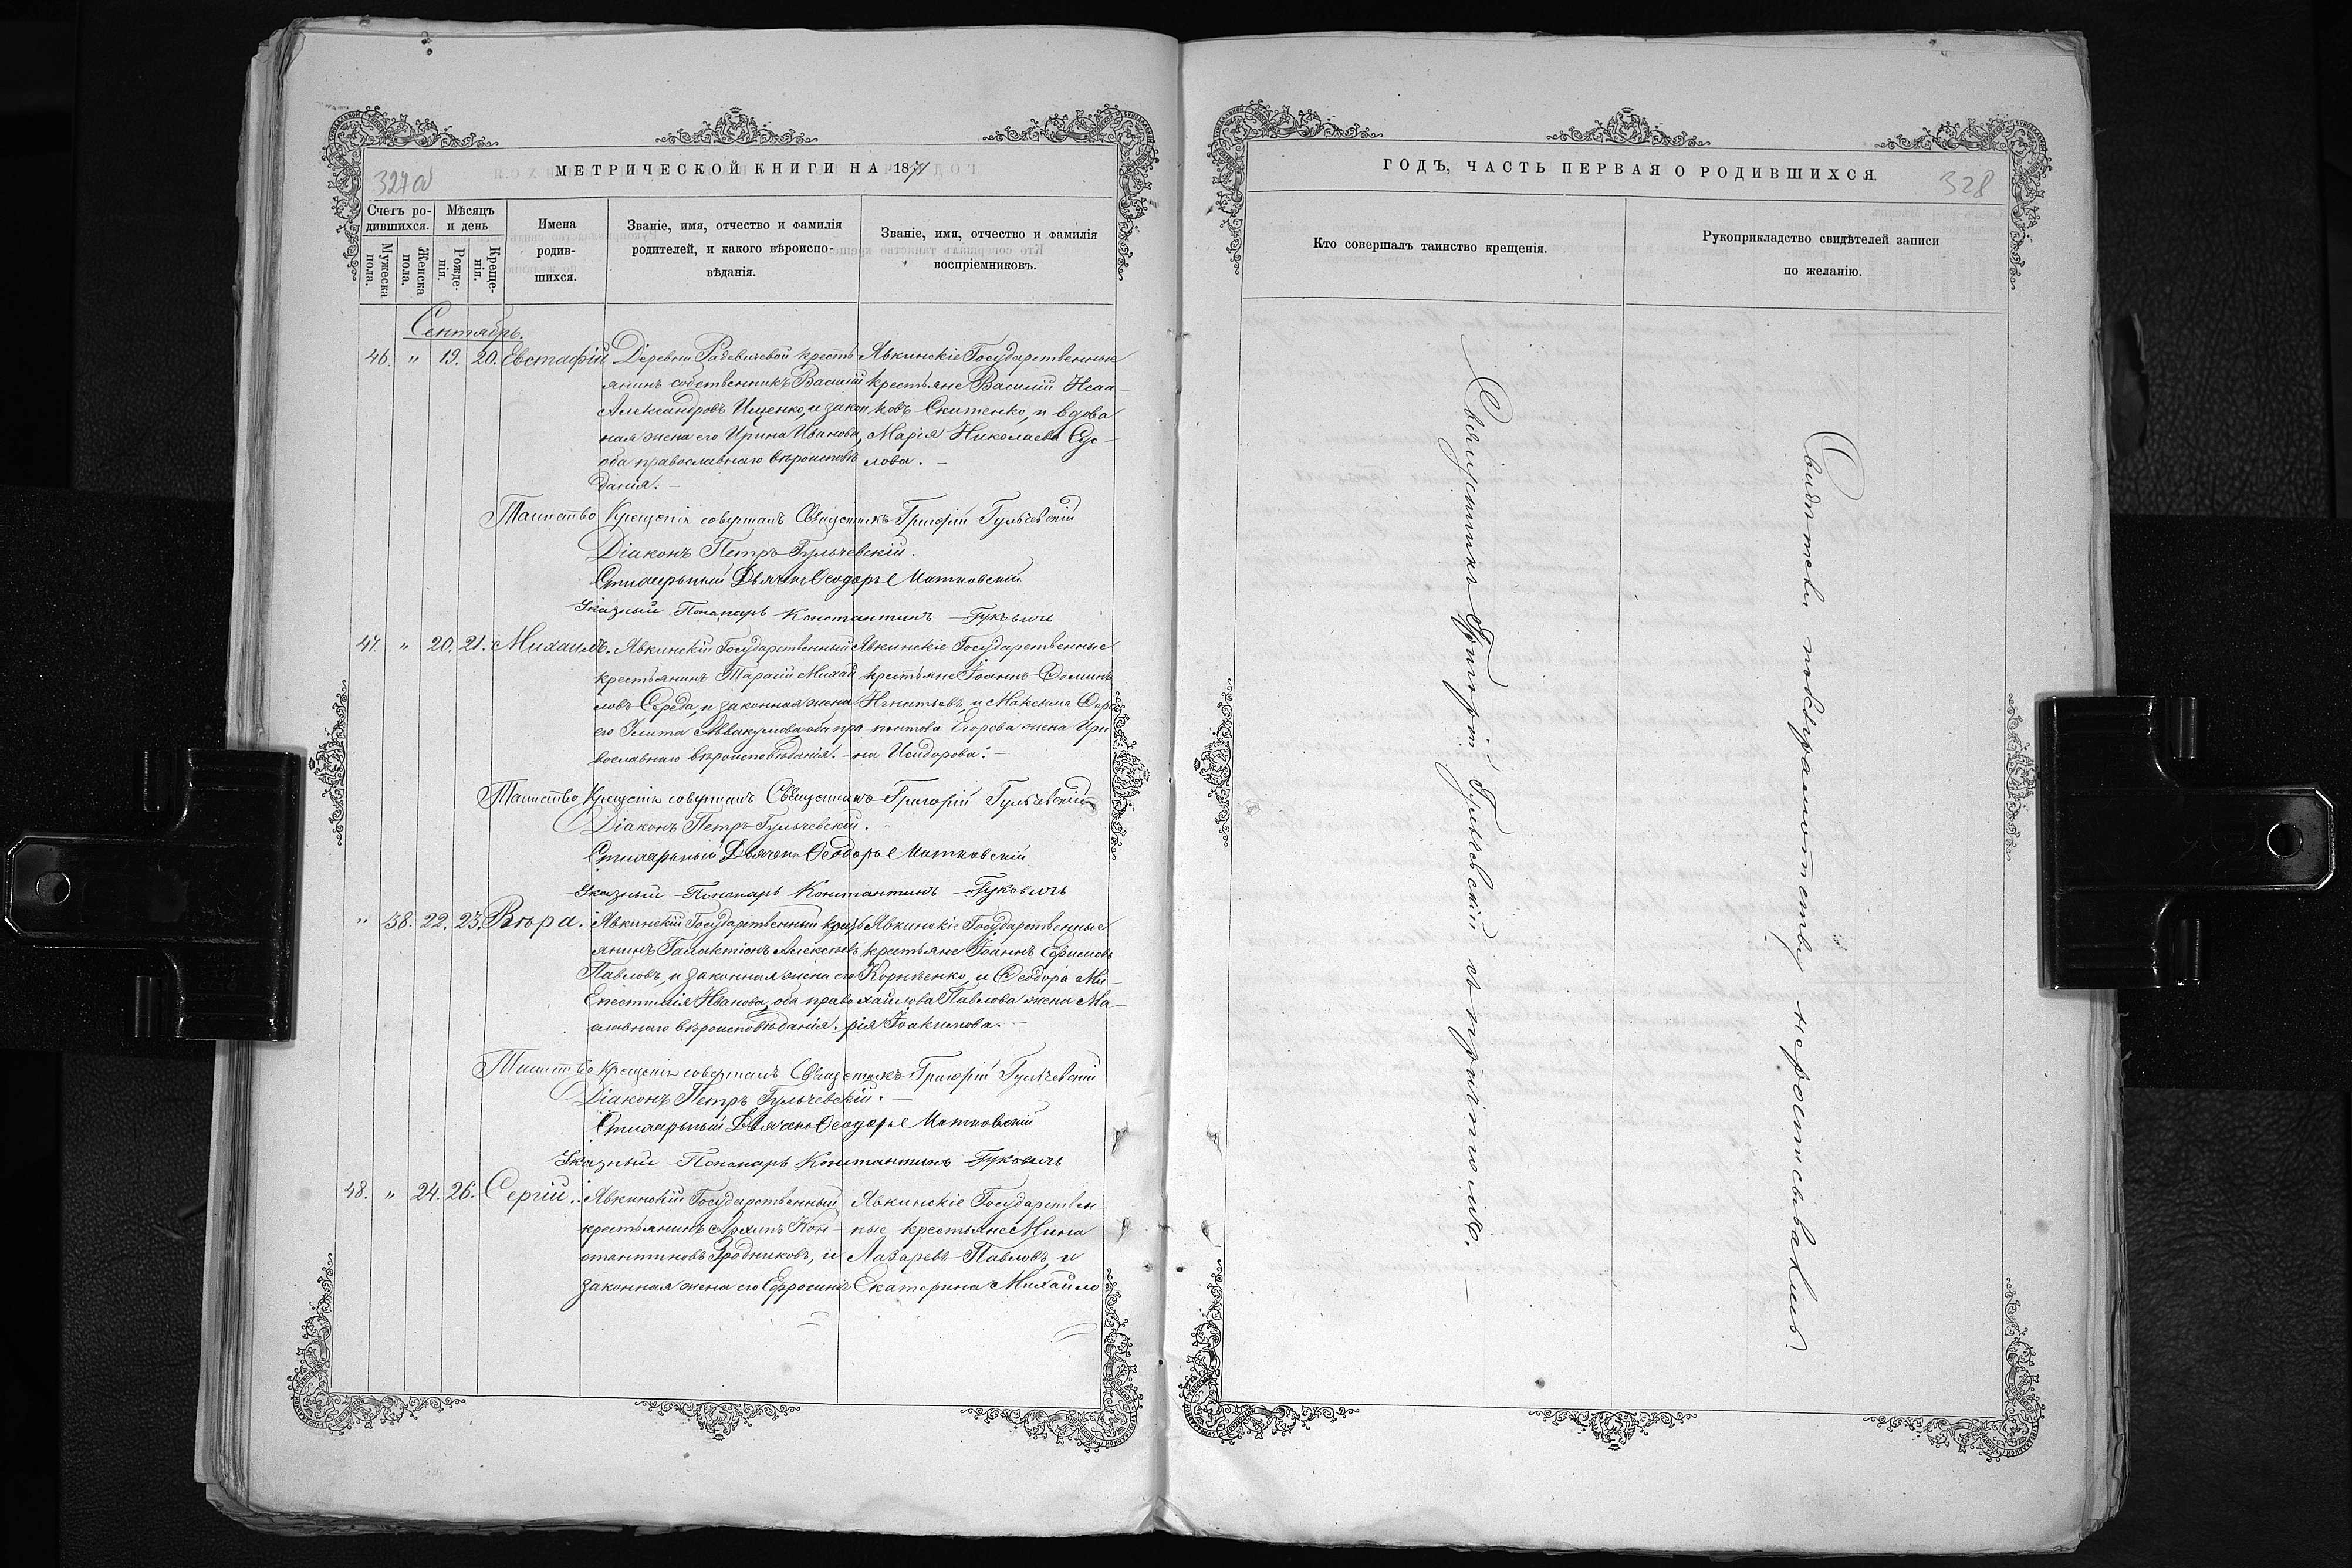 МЕТРИЧЕСКОЙ КНИГИ НА 1871
327об
Счетъ ро-
дившихся.
Мужеска
пола.
Женска
пола.
Мѣсяцъ
и день
Рожде-
нія.
Креще-
нія.
Имена
родив-
шихся.
Званіе, имя, отчество и фамилія
родителей, и какого вѣроиспо-
вѣданія.
Званіе, имя, отчество и фамилія
воспріемниковъ.
Сентябрь.
46. " 19. 20. Евстафій
Деревни Радевичевой кресть
янинъ собственникъ Василій
Александровъ Ищенко, и закон
ная жена его Ирина Иванова,
оба православнаго вѣроисповѣ
данія. —
Явкинскіе Государственные
крестьяне Василій Исаа-
ковъ Скитенко, и вдова
Марія Николаева Сус-
лова. —
Таинство Крещенія совершалъ Священникъ Григорій Гульчевскій
Діаконъ Петръ Гульчевскій.
Стихарный Дьячекъ Ѳеодоръ Матковскій
Указный Пономарь Константинъ Гуковичъ
47. " 20. 21. Михаилъ.
Явкинскій Государственный
крестьянинъ Тарасій Михай
ловъ Середа, и законная жена
его Улита Аввакумова, оба пра
вославнаго вѣроисповѣданія. —
Явкинскіе Государственные
крестьяне Іоаннъ Фоминъ
Игнатьевъ, и Максима Фера
понтова Егорова жена Ири
на Исидорова. —
Таинство Крещенія совершалъ Священникъ Григорій Гульчевскій
Діаконъ Петръ Гульчевскій.
Стихарный Дьячекъ Ѳеодоръ Матковскій
Указный Пономарь Константинъ Гуковичъ
" 38. 22. 23. Вѣра.
Явкинскій Государственный кресть
янинъ Галактіонъ Алексѣевъ
Павловъ, и законная жена его
Епестимія Иванова, оба право
славнаго вѣроисповѣданія.
Явкинскіе Государственные
крестьяне Іоаннъ Ефимовъ
Корнѣенко, и Ѳеодора Ми-
хайлова Павлова жена Ма-
рія Іоакимова. —
Таинство Крещенія совершалъ Священникъ Григорій Гульчевскій
Діаконъ Петръ Гульчевскій. —
Стихарный Дьячекъ Ѳеодоръ Матковскій
Указный Пономарь Константинъ Гуковичъ
48. " 24. 26. Сергій.
Явкинскій Государственный
крестьянинъ Архипъ Кон-
стантиновъ Продниковъ, и
законная жена его Ефросинія
Явкинскіе Государствен
ные крестьяне Мина
Лазаревъ Павловъ, и
Екатерина Михайло
ГОДЪ, ЧАСТЬ ПЕРВАЯ О РОДИВШИХСЯ.
328
Кто совершалъ таинство крещенія.
Рукоприкладство свидѣтелей записи
по желанію.
Священникъ Григорій Гульчевскій съ причтомъ. —
Свидѣтели по безграмотству не росписывались